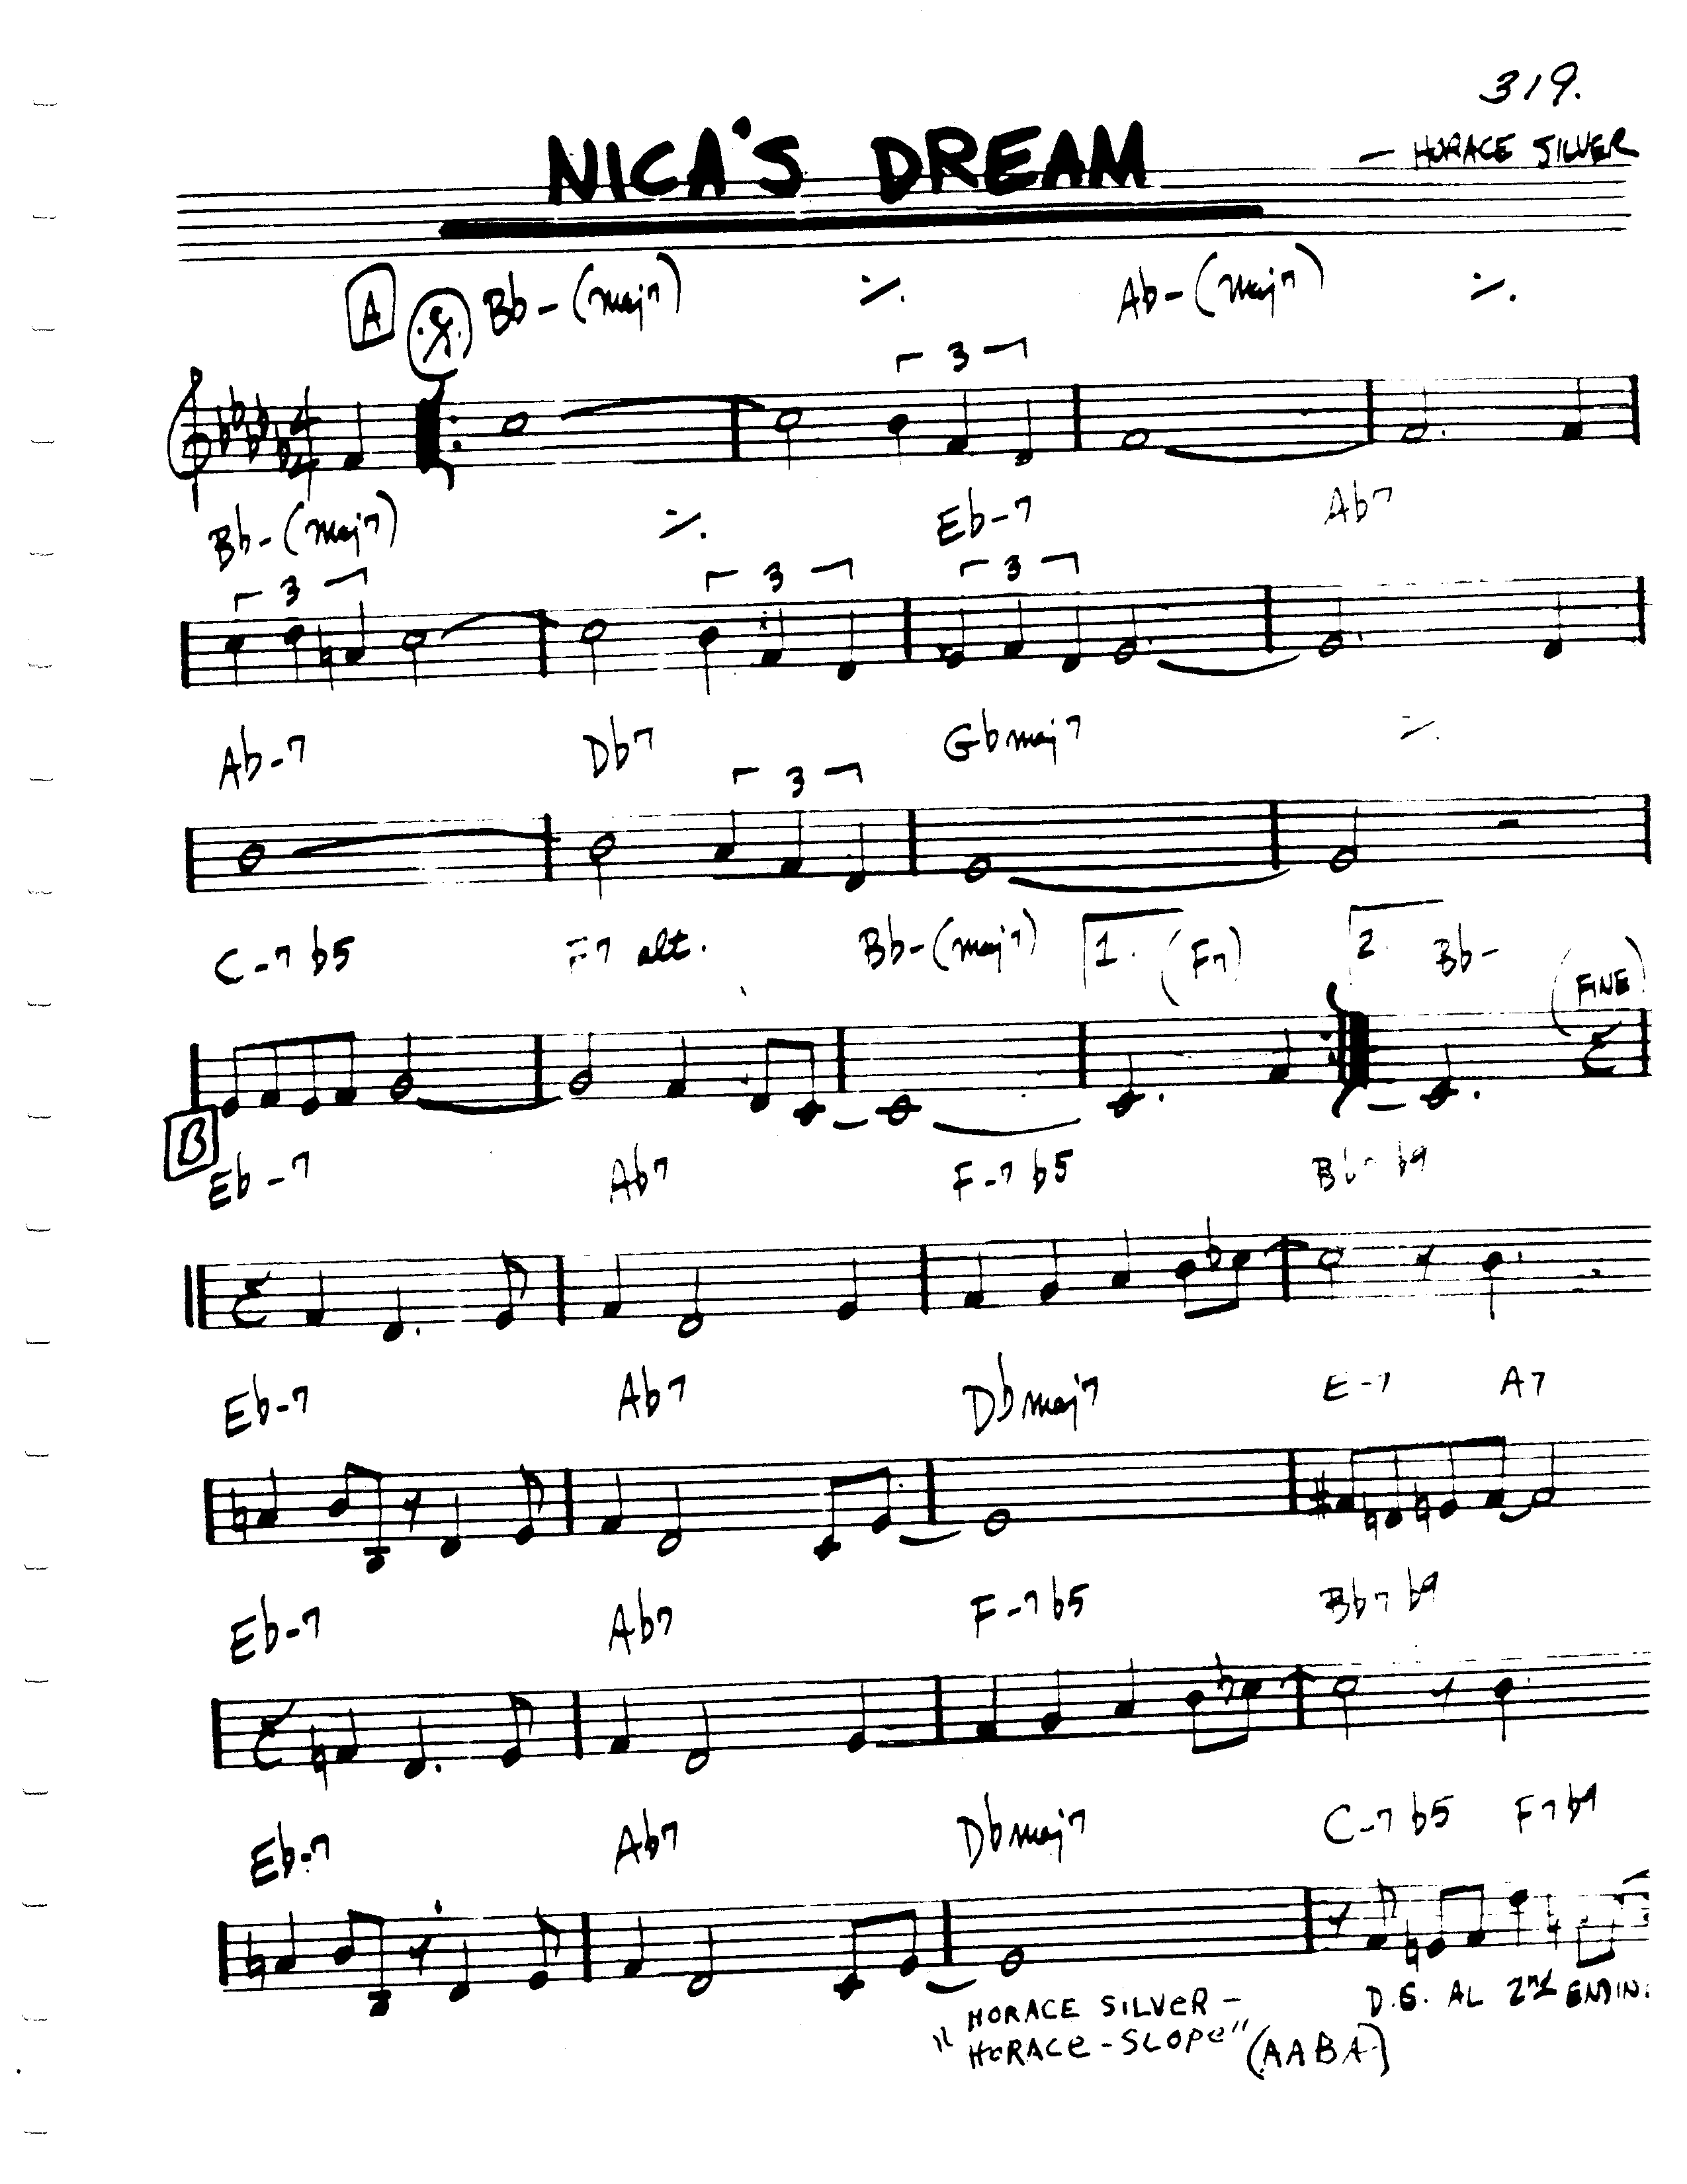 319.
NICA'S DREAM
— HORACE SILVER
A Bb-(maj7) ٪ Ab-(maj7) ٪
3
4 4
Bb-(maj7) ٪ Eb-7 Ab7
3 3 3
Ab-7 Db7 Gbmaj7 ٪
3
C-7 b5 F7 alt. Bb-(maj7) 1. (F7) 2. Bb- (FINE)
B
Eb-7 Ab7 F-7 b5 Bb7 b9
Eb-7 Ab7 Dbmaj7 E-7 A7
Eb-7 Ab7 F-7 b5 Bb7 b9
Eb-7 Ab7 Dbmaj7 C-7 b5 F7 b9
D.S. AL 2nd ENDIN.
"HORACE SILVER -
HORACE-SCOPE" (AABA)